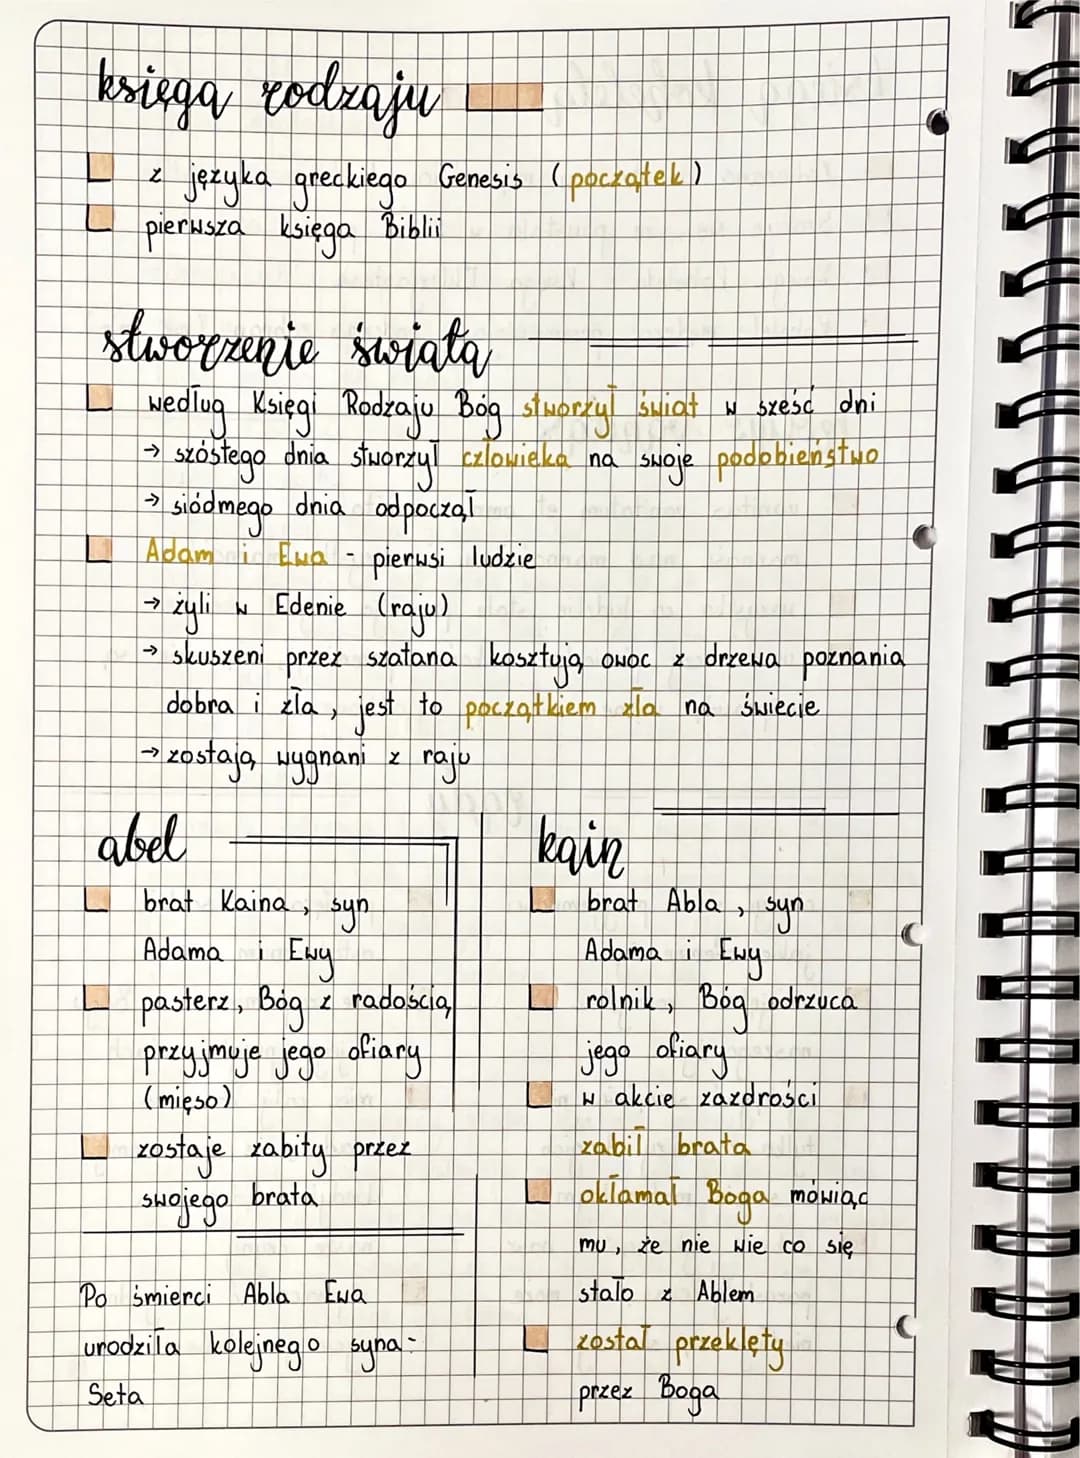 księga rodzaju
z języka greckiego Genesis (początek)
pierwsza księga Biblii
stworzenie świata
według Księgi Rodzaju Bóg stworzył świat w sześć dni
→ szóstego dnia stworzył człowieka na swoje podobieństwo
→ siódmego dnia odpoczął
Adam i Ewa - pierwsi ludzie
→ żyli w Edenie (raju)
→ skuszeni przez szatana kosztują owoc z drzewa poznania
dobra i zła, jest to początkiem zła na świecie
→ zostają wygnani z raju
abel
brat Kaina, syn
Adama i Ewy
pasterz, Bóg z radością
przyjmuje jego ofiary
(mięso)
zostaje zabity przez
swojego brata
Po śmierci Abla Ewa
urodziła kolejnego syna -
Seta
kain
brat Abla, syn
Adama i Ewy
rolnik, Bóg odrzuca
jego ofiary
w akcie zazdrości
zabił brata
okłamał Boga mówiąc
mu, że nie wie co się
stało z Ablem
został przeklęty
przez Boga